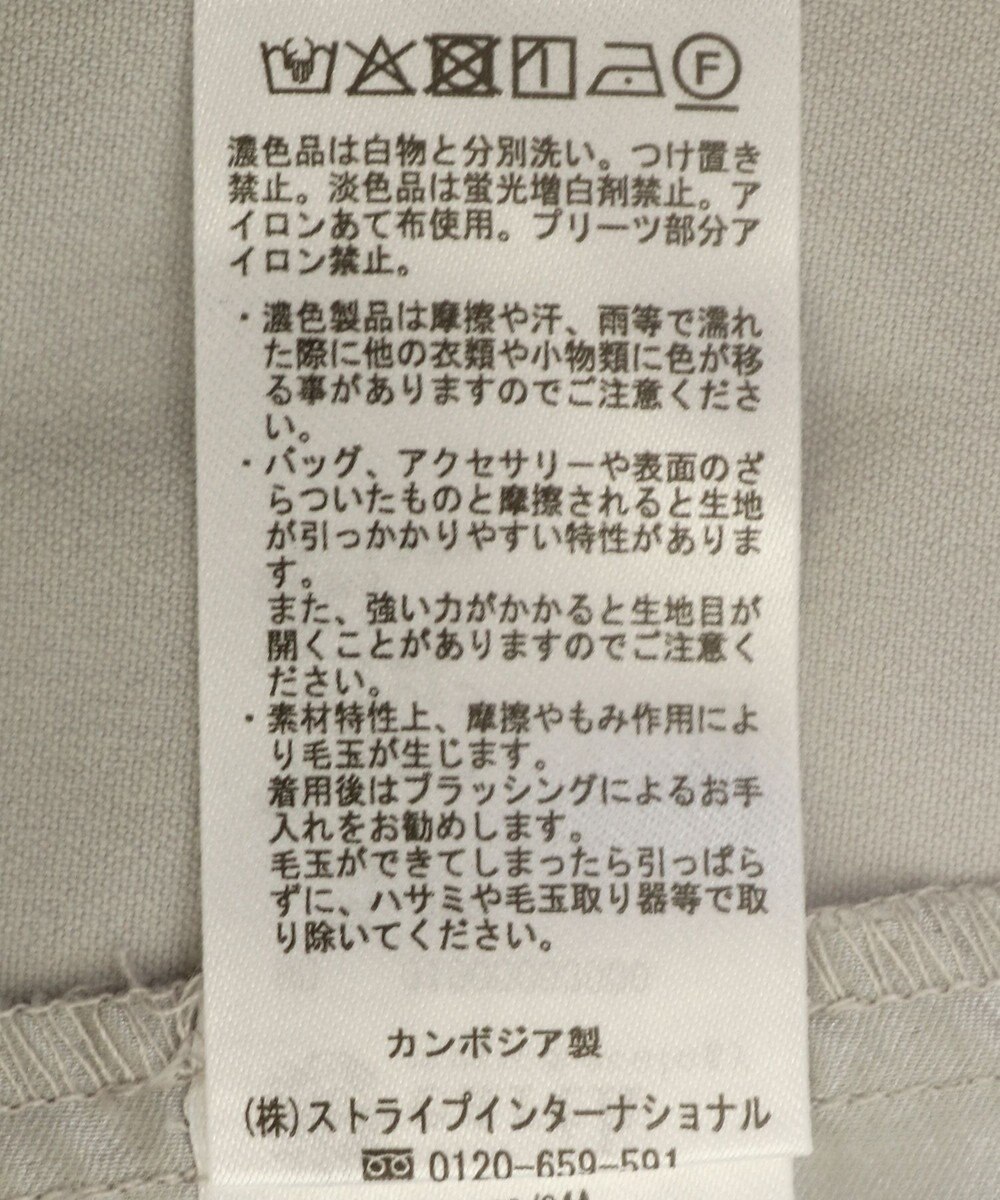 F
濃色品は白物と分別洗い。つけ置き
禁止。淡色品は蛍光増白剤禁止。ア
イロンあて布使用。プリーツ部分ア
イロン禁止。
・濃色製品は摩擦や汗、雨等で濡れ
た際に他の衣類や小物類に色が移
る事がありますのでご注意くださ
い。
・バッグ、アクセサリーや表面のざ
らついたものと摩擦されると生地
が引っかかりやすい特性がありま
す。
また、強い力がかかると生地目が
開くことがありますのでご注意く
ださい。
・素材特性上、摩擦やもみ作用によ
り毛玉が生じます。
着用後はブラッシングによるお手
入れをお勧めします。
毛玉ができてしまったら引っぱら
ずに、ハサミや毛玉取り器等で取
り除いてください。
カンボジア製
(株)ストライプインターナショナル
0120-659-591